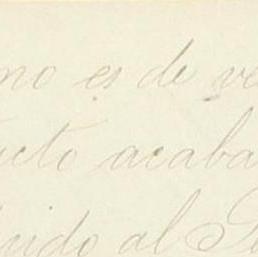 no es de ve
ucto acaba
uido al